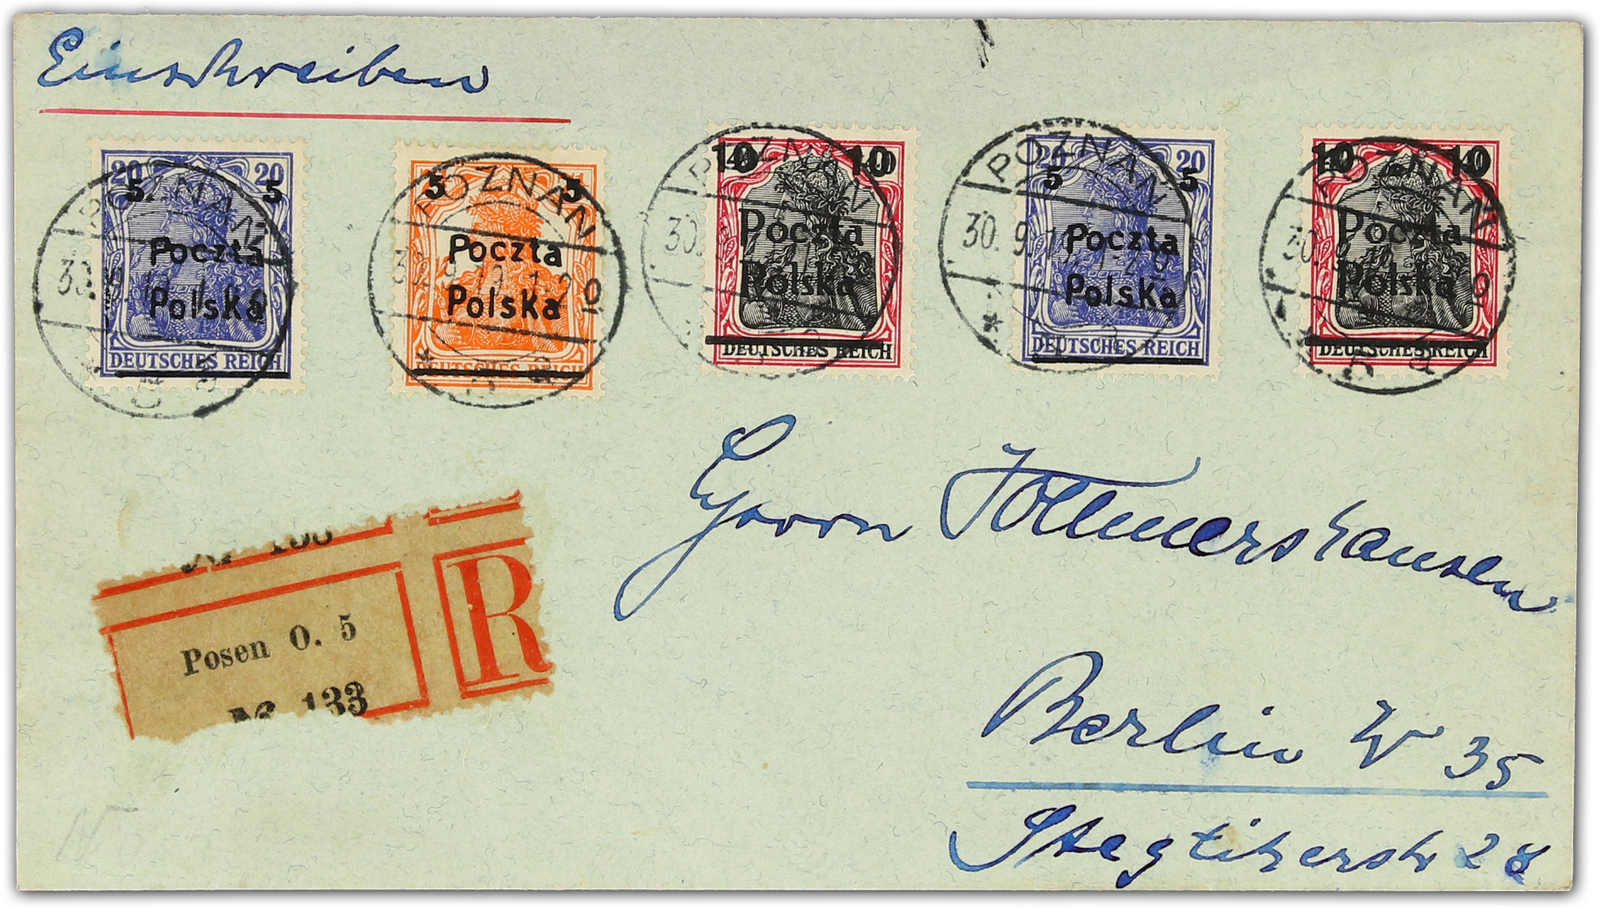 Einschreiben
20 20
5 5
Poczta
Polska
DEUTSCHES REICH
POZNAŃ
5 5
Poczta
Polska
DEUTSCHES REICH
POZNAŃ
10 10
Poczta
Polska
DEUTSCHES REICH
POZNAŃ
30.
20 20
5 5
Poczta
Polska
DEUTSCHES REICH
POZNAŃ
30. 9.
10 10
Poczta
Polska
DEUTSCHES REICH
POZNAŃ
30.
№ 133
Posen O. 5
№ 133
R
Herrn Vollmershausen
Berlin W 35
Steglitzerstr 28